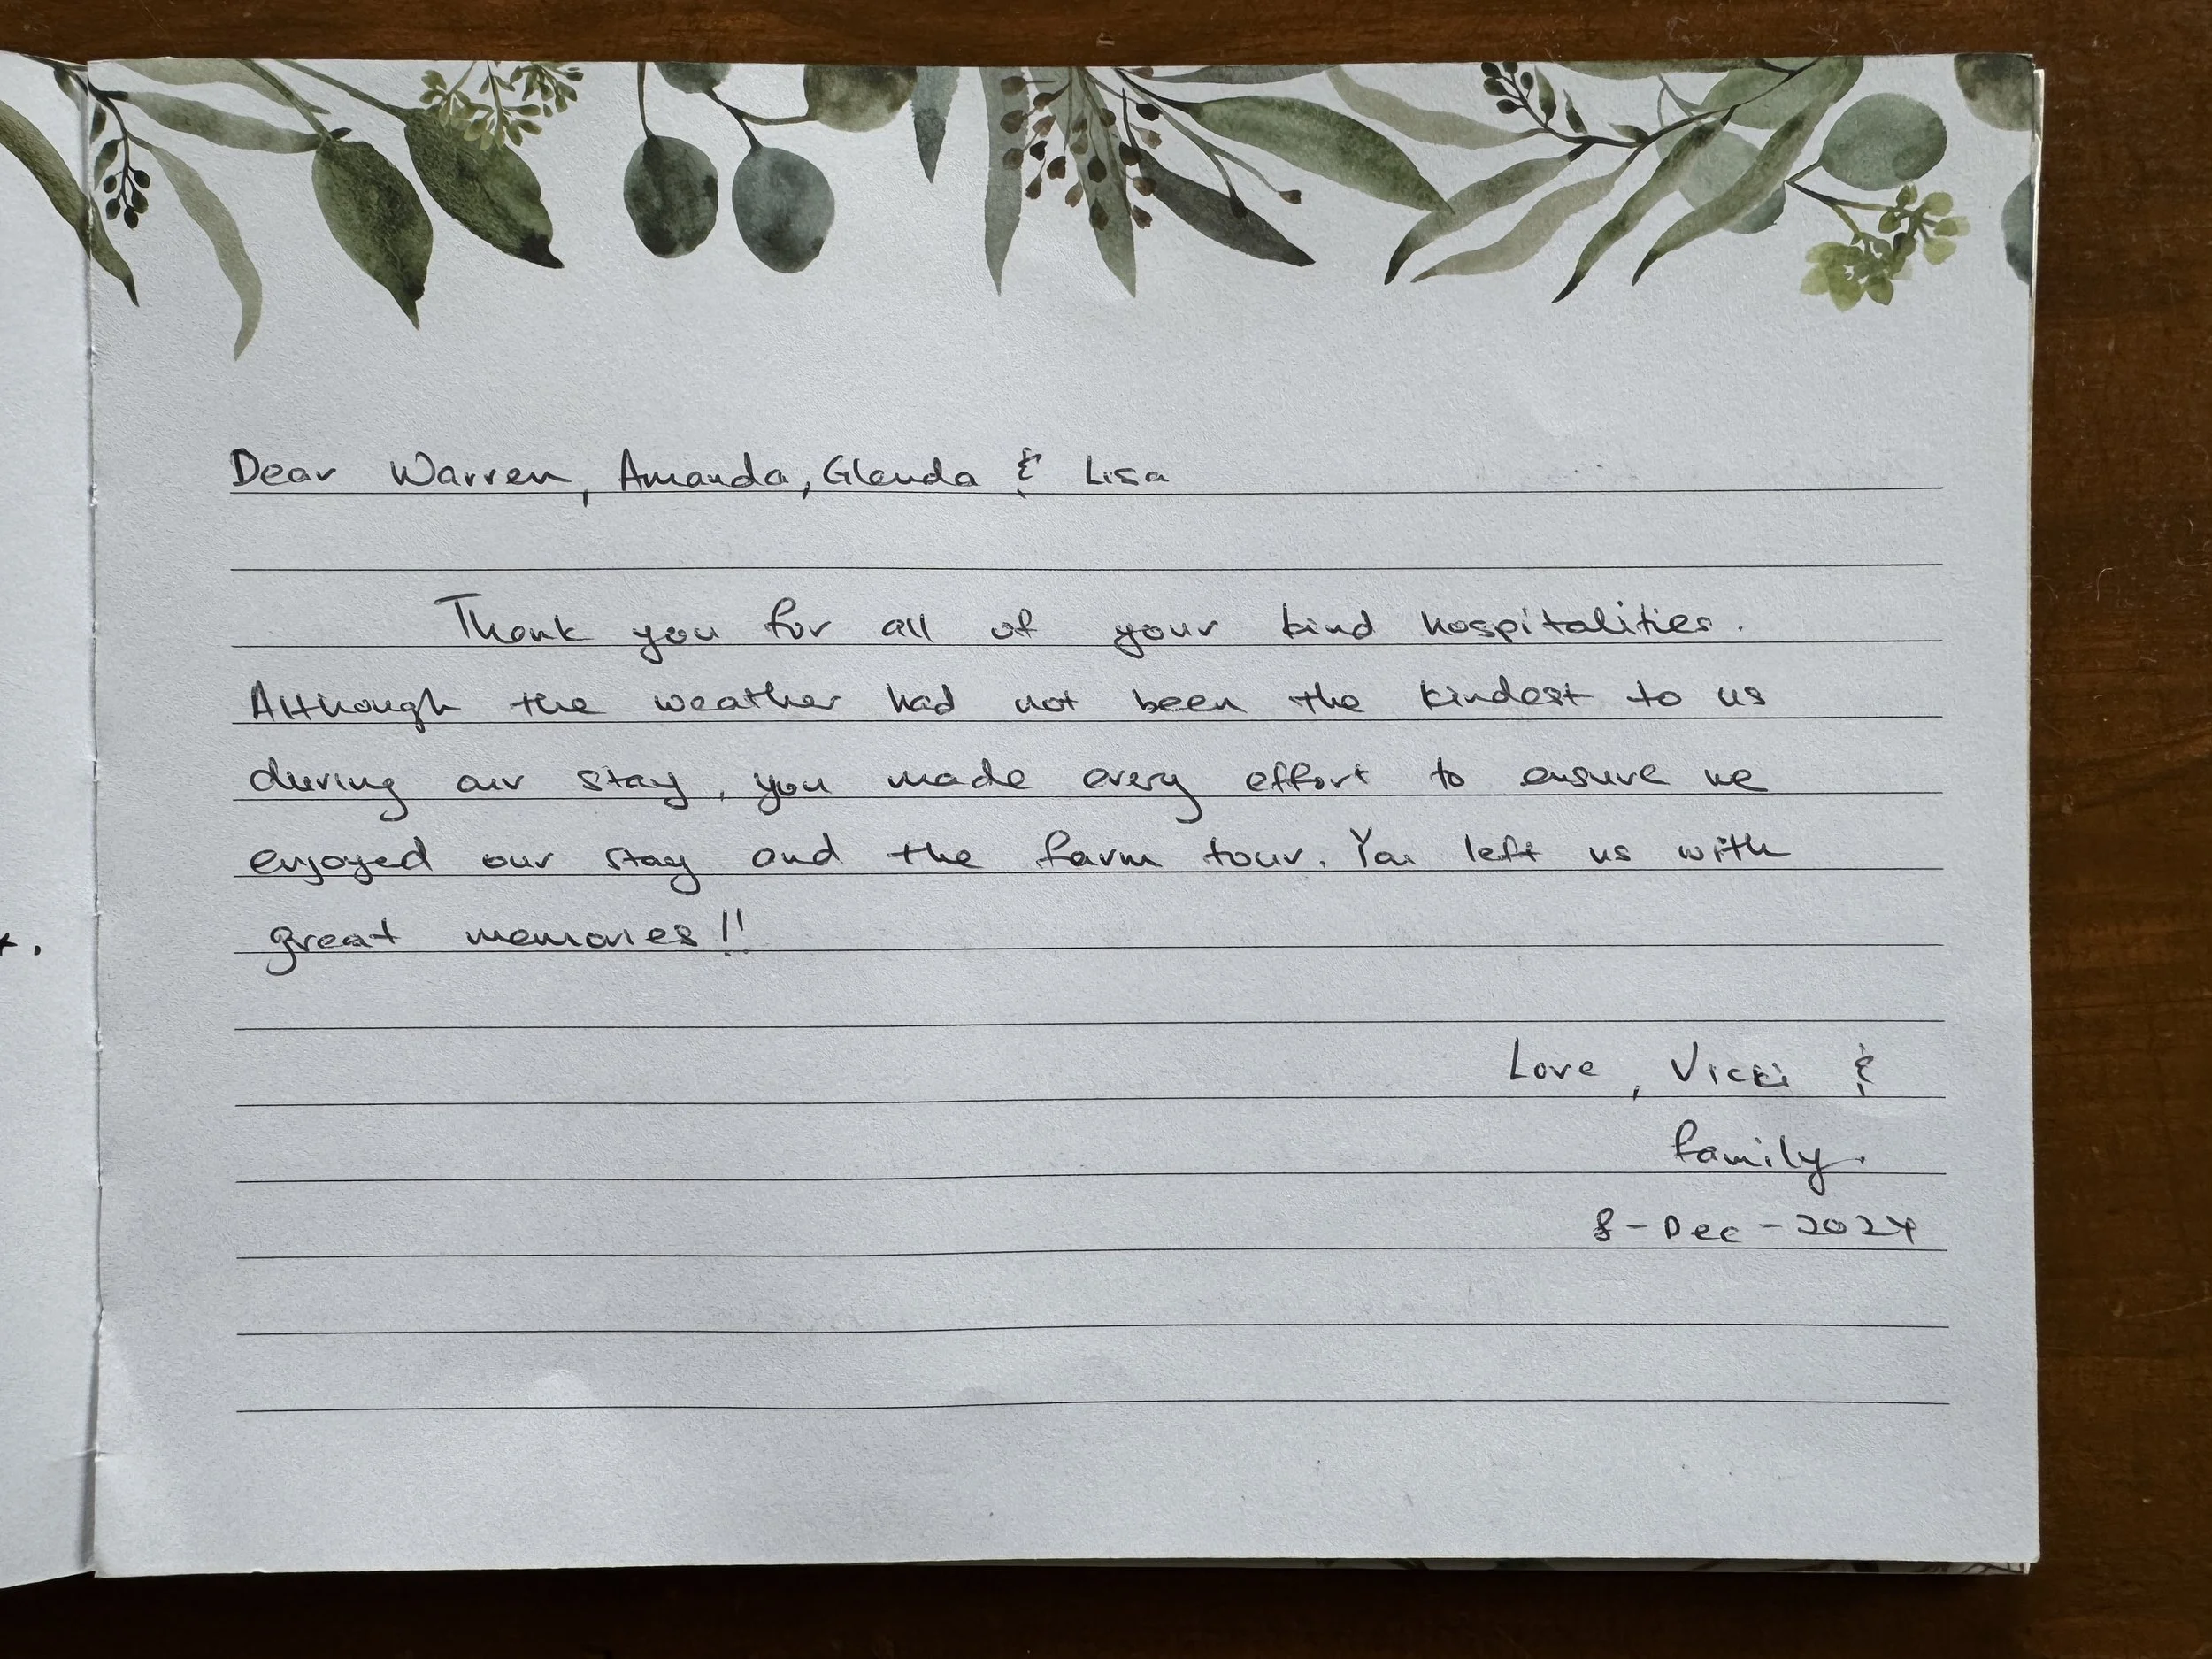 Dear Warren, Amanda, Glenda & Lisa
Thank you for all of your kind hospitalities.
Although the weather had not been the kindest to us
during our stay, you made every effort to ensure we
enjoyed our stay and the farm tour. You left us with
great memories!!
Love, Vicki &
family.
8-Dec-2024